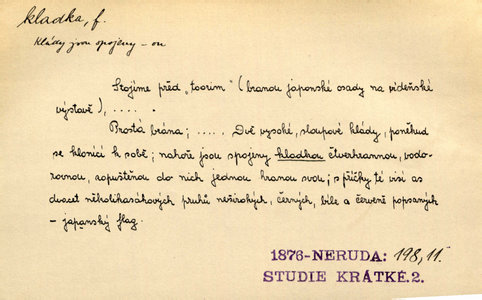 kladka, f.
Klády jsou spojeny - ou
Stojíme před „toorim“ (branou japonské osady na vídeňské
výstavě), . . . . .
Prostá brána; . . . . . Dvě vysoké, sloupové klády, poněkud
se klonící k sobě; nahoře jsou spojeny kladkou čtverhrannou, vodo-
rovnou, zapuštěnou do nich jednou hranou svou; s příčky té visí as
dvacet několikasáhových pruhů neširokých, černých, bíle a červeně popsaných
- japanský flag.
1876-NERUDA: 198, 11.
STUDIE KRÁTKÉ.2.